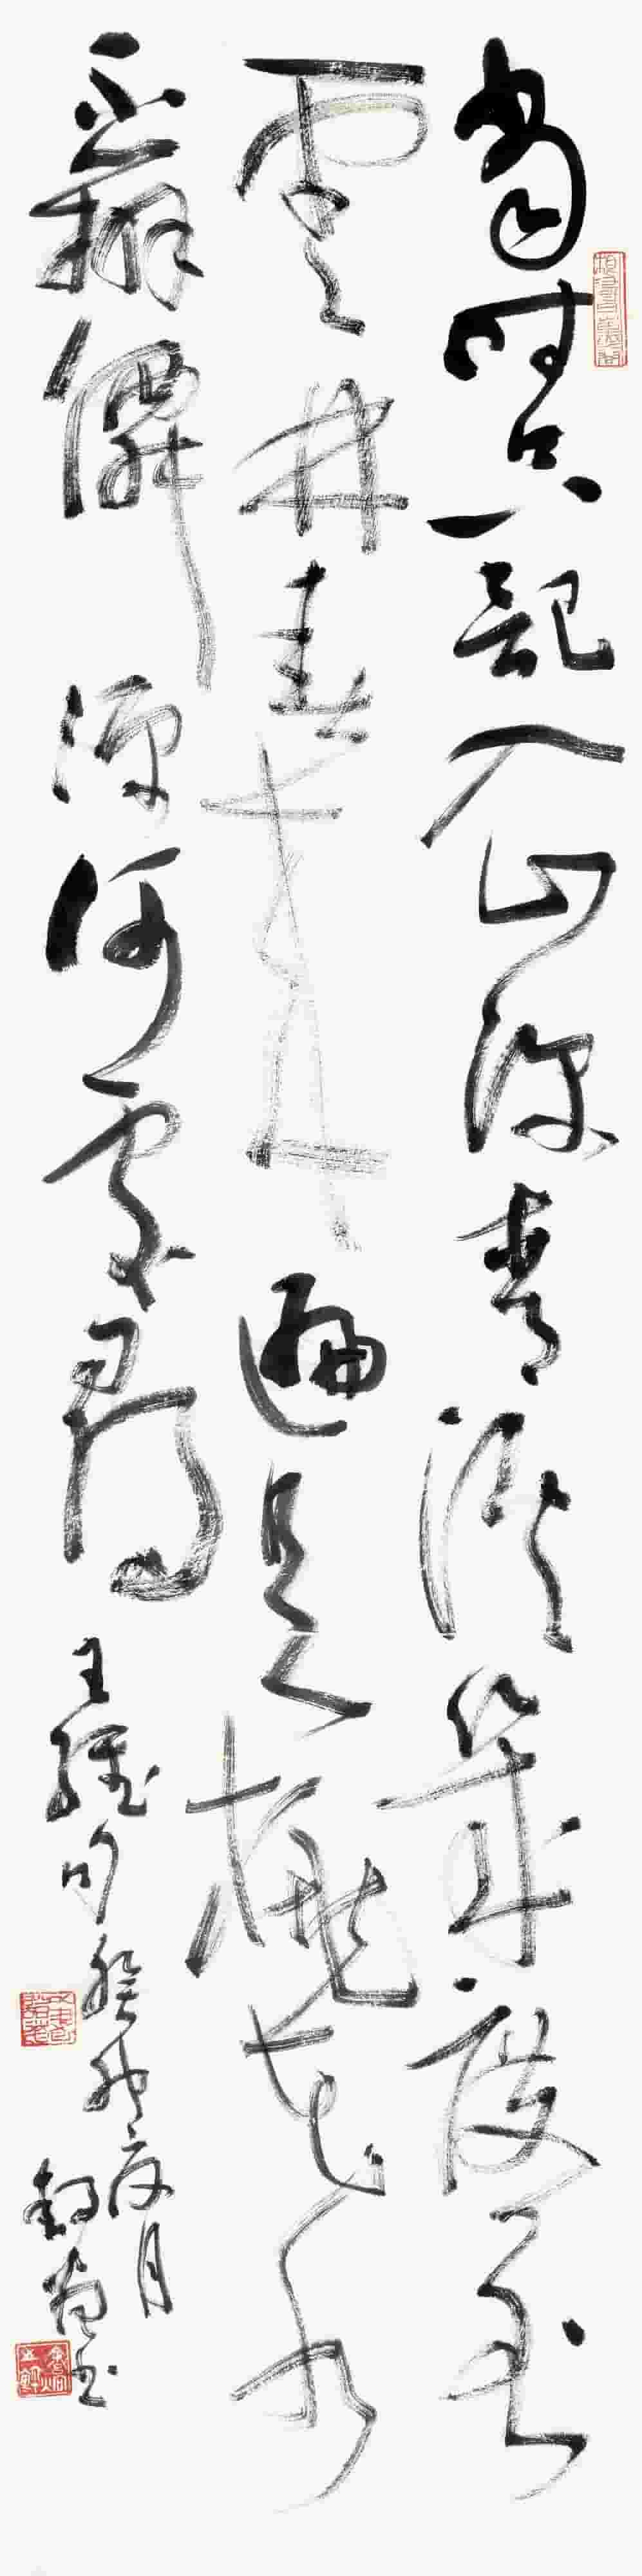 當時只記入山深青溪幾度到
雲林春來遍是桃花水
不辨僊源何處尋 王維句 癸 夏月
書